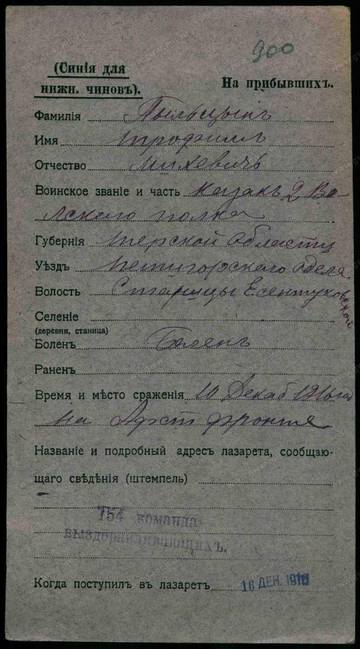 900
(Синія для
нижн. чиновъ).
На прибывшихъ.
Фамилія Пыльцынъ
Имя Трофимъ
Отчество Михевичъ
Воинское званіе и часть казакъ 2 Во
лскаго полка
Губернія Терской области
Уѣздъ Пятигорскаго отдела
Волость Станицы Есентуковской
Селеніе
(деревни, станица)
Боленъ Боленъ
Раненъ
Время и мѣсто сраженія 10 Декаб 1916 года
на фронте
Названіе и подробный адресъ лазарета, сообщаю-
щаго свѣдѣнія (штемпель)
154 команда
выздоравливающихъ.
Когда поступилъ въ лазаретъ 16 ДЕК. 1916